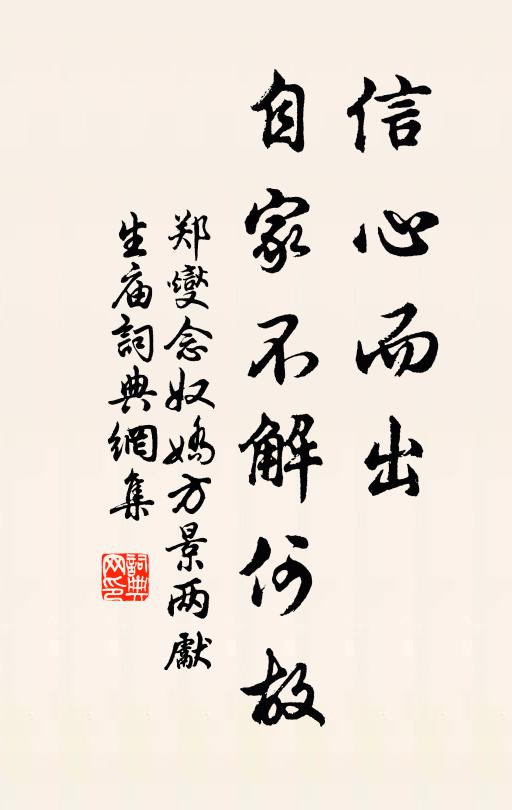 信心而出
自家不解何故
郑燮念奴娇方景两獻
生庙詞典網集
詞典
网印